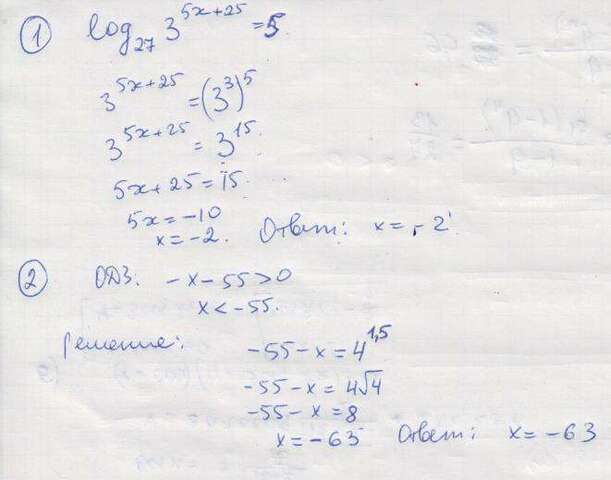 ① log₂₇ 3^(5x+25) = 5.
3^(5x+25) = (3³)⁵
3^(5x+25) = 3¹⁵.
5x+25 = 15.
5x = -10
x = -2. Ответ: x = -2
② ОДЗ. -x-55>0
x < -55.
Решение:
-55-x = 4^1,5
-55-x = 4√4
-55-x = 8
x = -63 Ответ: x = -63